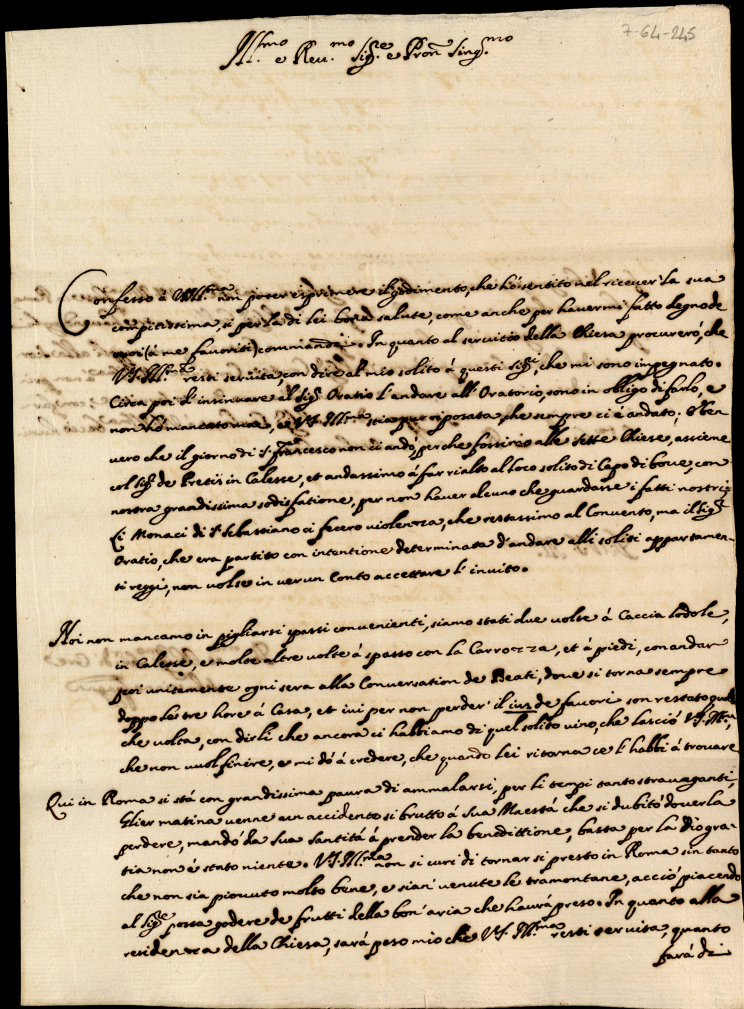 7-64-245
Ill.mo e Reu.mo Sig.re e Pron Sing.mo
Confesso à V.S. Ill.ma non poter esprimere il godimento, che hò sentito nel riceuer la sua
compitissima, si per la di lei bona salute, come anche per hauermi fatto degno de
suoi (à me fauoriti) commandi. In quanto al seruitio della Chiesa procurerò, che
V.S. Ill.ma resti seruita, con dire al mio solito à questi Sig.ri, che mi sono impegnato.
Circa poi d'insinuare al Sig.r Oratio l'andare all'Oratorio, sono in obligo di farlo, e
non hò mancato mai, e V.S. Ill.ma stia pur riposata, che sempre ci è andato; Ben
vero che il giorno di S. Francesco non ci andò, perche fossimo alle sette Chiese, assieme
col Sig.r de Pretis in Calesse, et andassimo à far rialto al loco solito di Capo di boue, con
nostra grandissima sodisfatione, per non hauer alcuno che guardasse i fatti nostri;
Li Monaci di S. Sebastiano ci fecero violenza, che restassimo al Conuento, ma il Sig.r
Oratio, che era partito con intentione determinata d'andare alli soliti appartamen-
ti regij, non volse in verun conto accettare l'inuito.
Noi non mancamo in pigliarsi spassi conuenienti, siamo stati due volte à Caccia lodole,
in Calesse, e molte altre volte à spasso con la Carrozza, et à piedi, con andar
poi unitamente ogni sera alla Conuersation de Beati, doue si torna sempre
doppo le tre hore à Casa, et iui per non perder il ius de fauori son restato qual-
che volta, con dirli che ancora ci habbiamo di quel solito vino, che lasciò V.S. Ill.ma,
che non vuol finire, e mi dò à credere, che quando lei ritorna ce l'habbi à trouare
Qui in Roma si stà con grandissima paura di ammalarsi, per li tempi tanto strauaganti,
Hier matina venne un accidente si brutto à Sua Maestà che si dubitò douerla
perdere, mandò da Sua Santità à prender la benedittione, basta per la Dio gra-
tia non è stato niente. V.S. Ill.ma non si curi di tornar si presto in Roma sin tanto
che non sia piouuto molto bene, e sian' venute le tramontane, acciò piacendo
al Sig.re possa godere de frutti della bon'aria che haurà preso. In quanto alla
residenza della Chiesa, sarà peso mio che V.S. Ill.ma resti seruita, quanto
sarà di